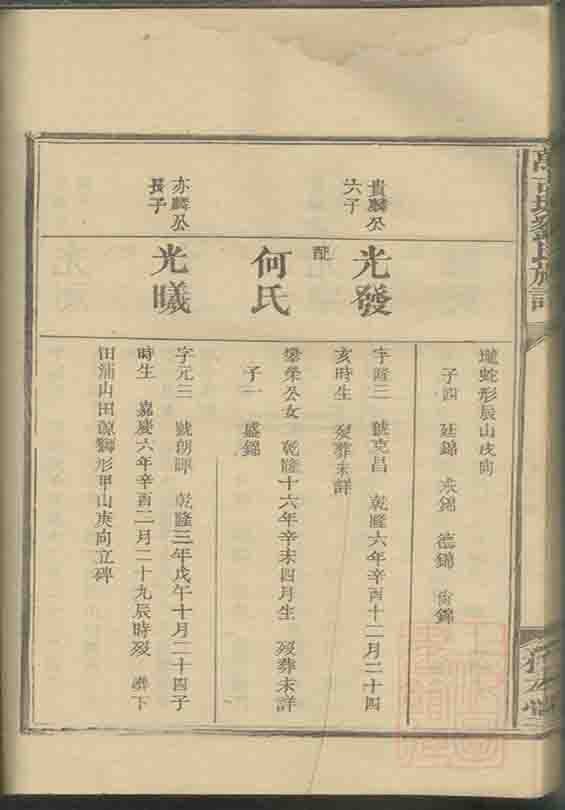 壠蛇形辰山戌向
子四 廷錦 德錦
貴麟公
六子
光發
字隆三 號克昌 乾隆六年辛酉十二月二十四
亥時生 歿葬未詳
配
何氏
榮公女 乾隆十六年辛未四月生 歿葬未詳
子一 盛錦
亦麟公
長子
光曦
字元三 號朝暉 乾隆三年戊午十月二十四子
時生 嘉慶六年辛酉二月二十九辰時歿 葬下
田浦山田源獅形甲山庚向立碑
劉氏族譜